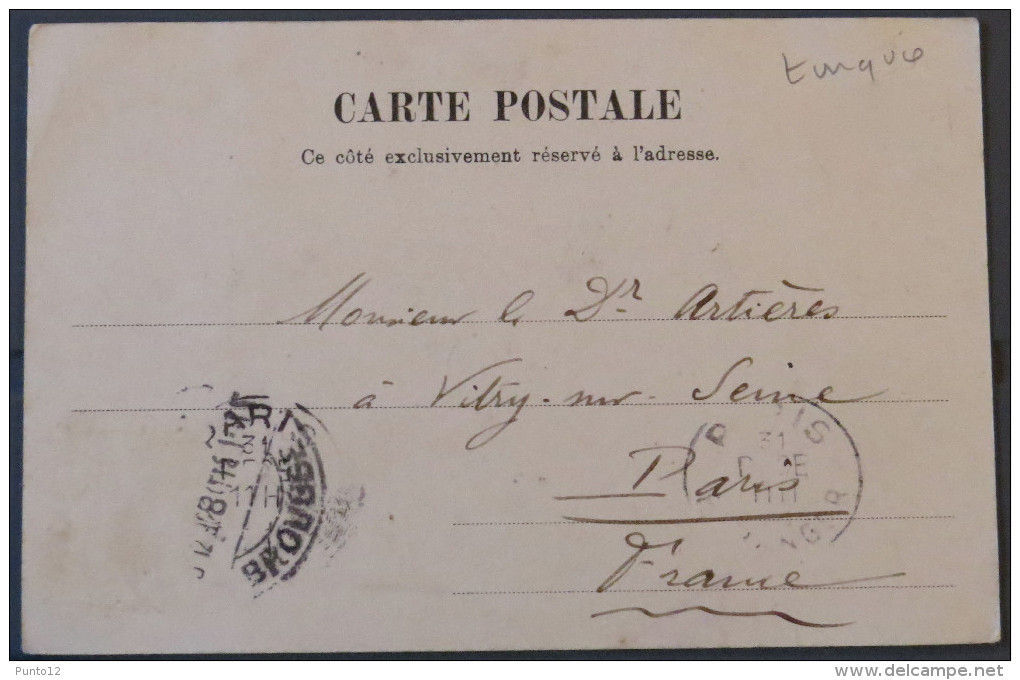 turquie
CARTE POSTALE
Ce côté exclusivement réservé à l'adresse.
Monsieur le Dr Artières
à Vitry-sur-Seine
Paris
France
31
11 H
BROUSSE
Punto12
www.delcampe.net